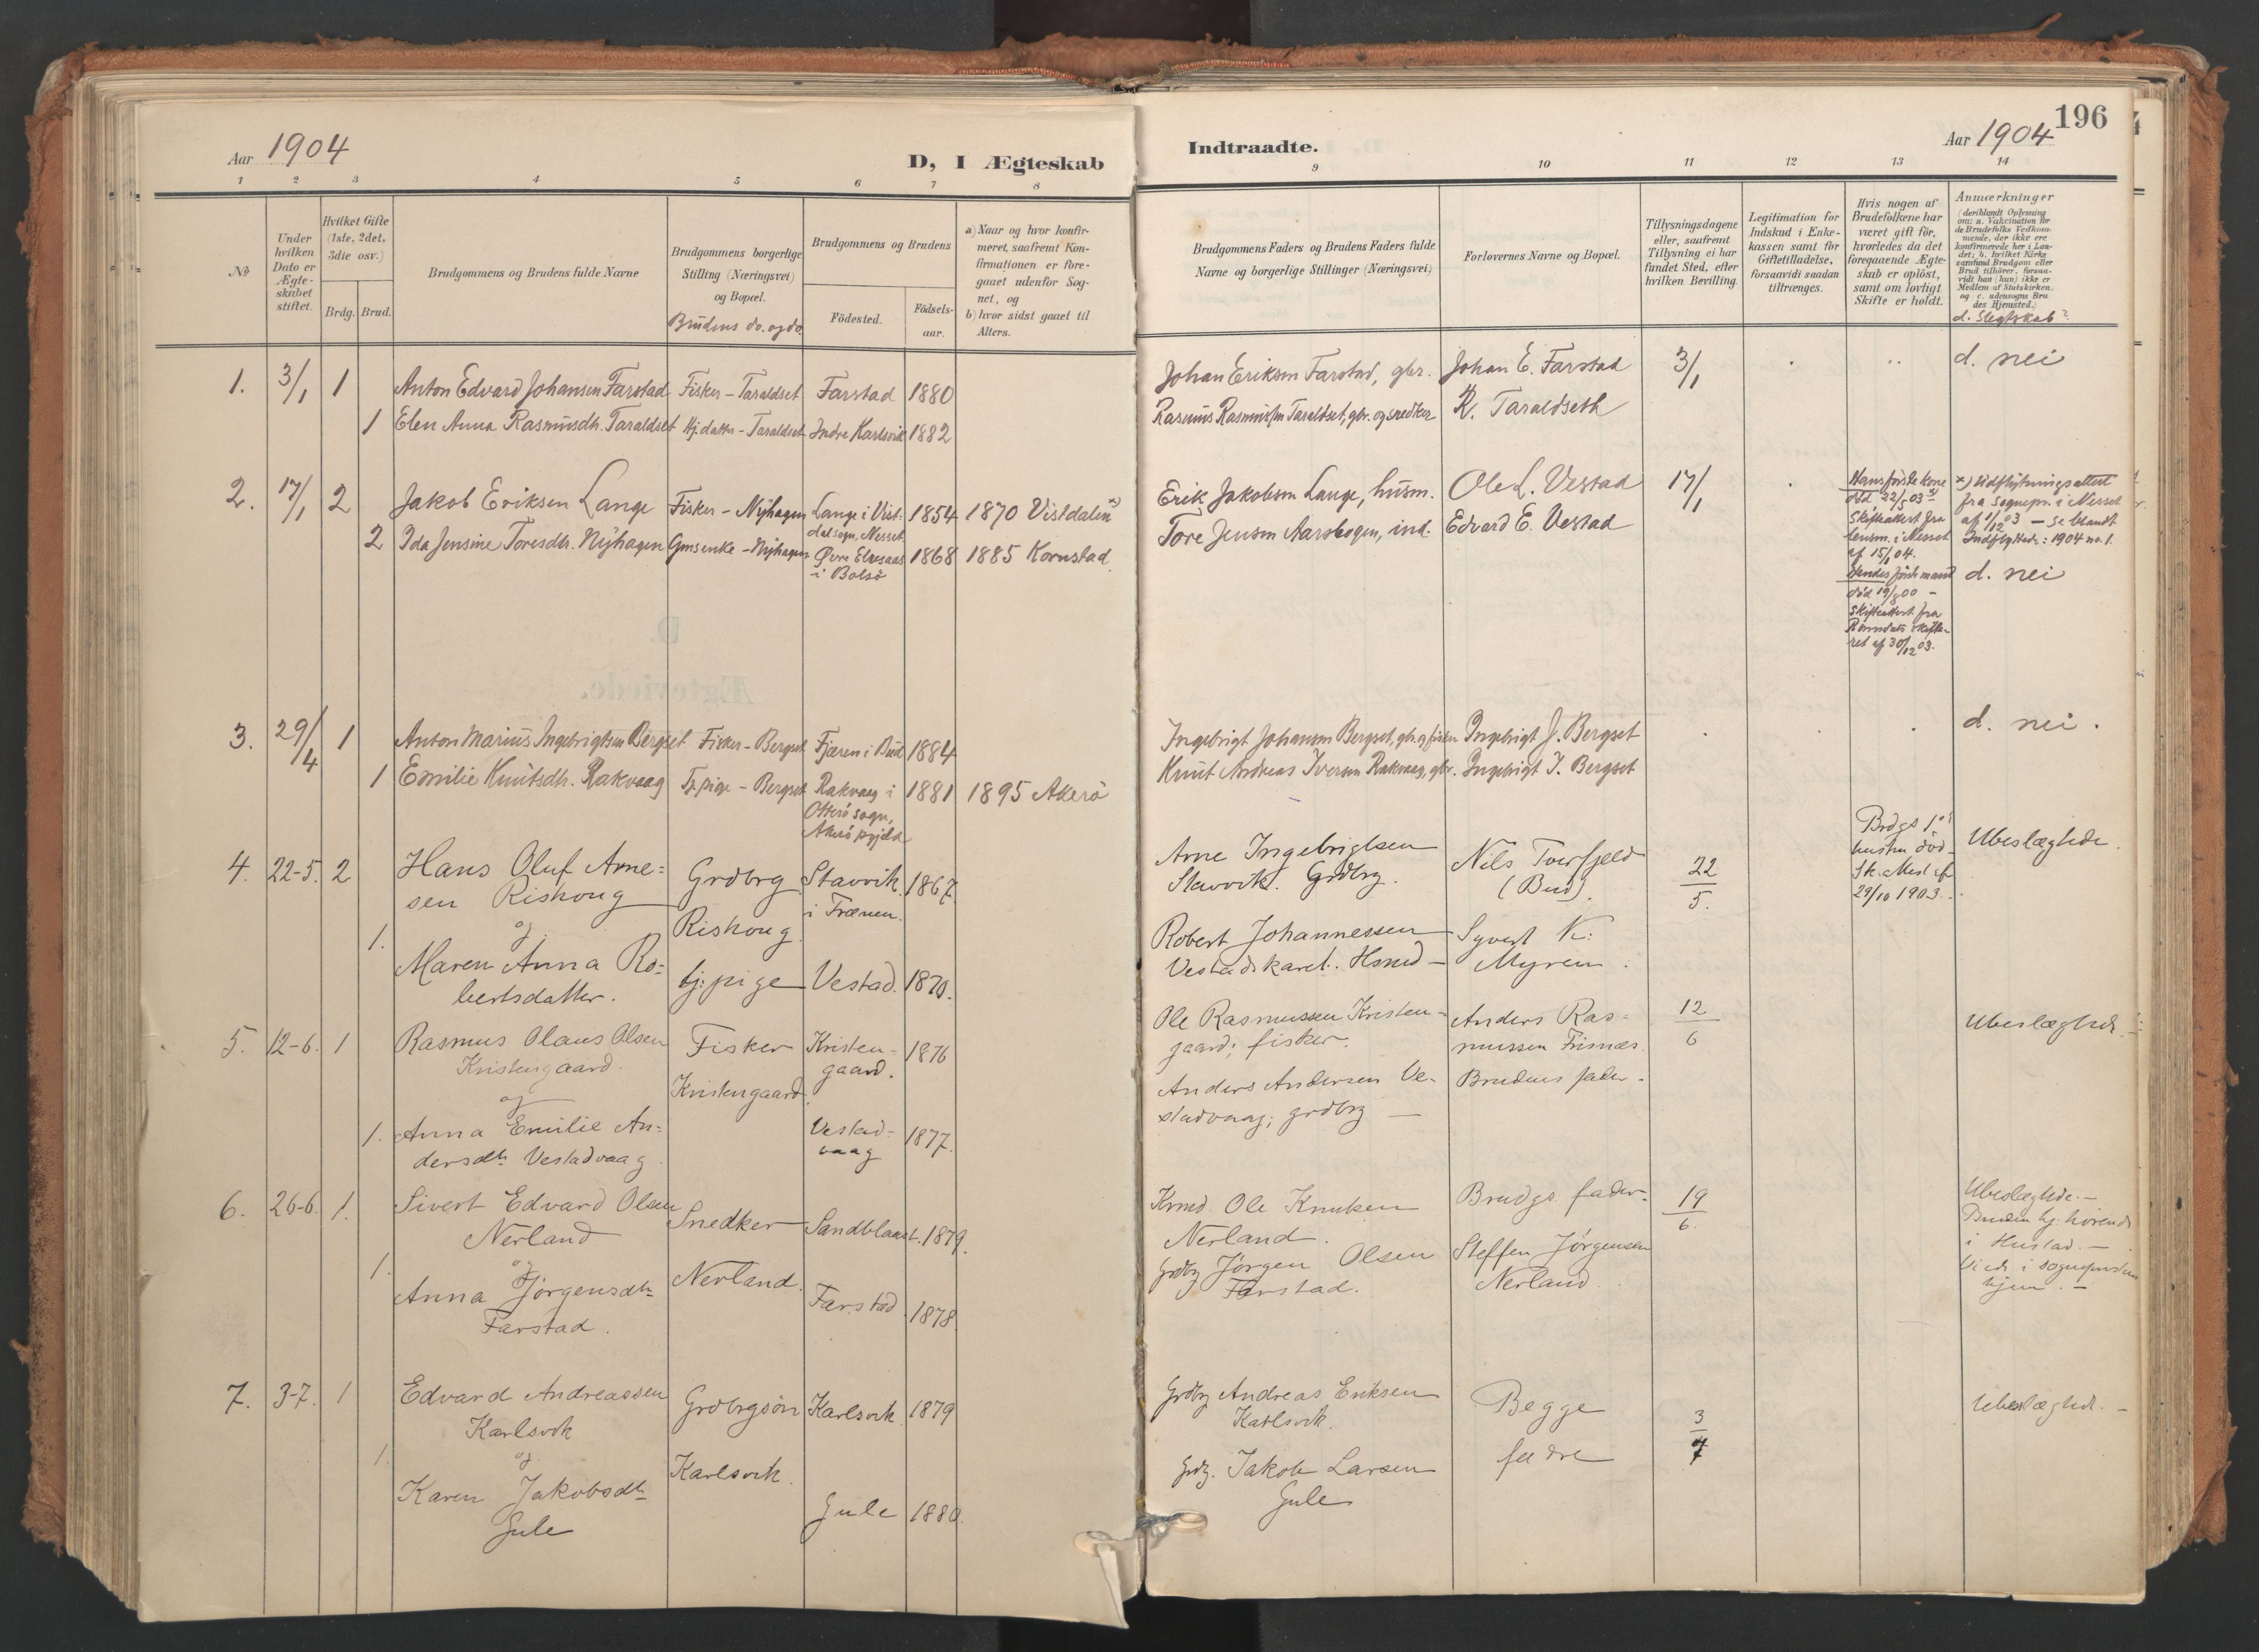 Aar 1904
D, I Ægteskab
1 2 3 4 5 6 7 8
No
Under hvilken Dato er Ægteskabet stiftet.
Hvilket Gifte (1ste, 2det, 3die osv.)
Brdg. Brud.
Brudgommens og Brudens fulde Navne
Brudgommens borgerlige Stilling (Næringsvei) og Bopæl.
Brudens do. og do
Brudgommens og Brudens
Födested.
Födsels-aar.
a) Naar og hvor konfir-
meret, saafremt Kon-
firmationen er fore-
gaaet udenfor Sog-
net, og
b) hvor sidst gaaet til
Alters.
1. 3/1 1 Anton Edvard Johansen Farstad Fisker – Taraldset Farstad 1880
1 Elen Anna Rasmusdtr. Taraldset Hj. datter – Taraldset Indre Karlsvik 1882
2. 17/1 2 Jakob Eriksen Lange Fisker – Nyhagen Lange i Vist- 1854 1870 Vistdalen x)
dal sogn, Nesset
2 Ida Jensine Toresdtr. Nyhagen Gmsenke – Nyhagen Øvre Elvesaas 1868 1885 Kornstad
i Bolsö
3. 29/4 1 Anton Marius Ingebrigtsen Bergset Fisker – Bergset Fjæren i Bud 1884
1 Emilie Knutsdtr. Rakvaag Tj. pige – Bergset Rakvaag i 1881 1895 Akerö
Otterö sogn,
Akerö pgjeld
4. 22-5. 2 Hans Oluf Arne= Grdbrg Stavvik 1867.
sen Riskoug i Frænen.
og Riskoug
1. Maren Anna Ro= hj: pige Vestad. 1870.
bertsdatter.
5. 12-6. 1 Rasmus Olaus Olsen Fisker Kristen- 1876
Kristengaard. gaard.
og Kristengaard.
1. Anna Emilie An= Vestad- 1877.
dersdtr Vestadvaag. vaag
6. 26-6. 1. Sivert Edvard Olsen Snedker Sandblaast. 1879.
Nerland
og Nerland.
1. Anna Jørgensdtr Farstad 1878.
Farstad.
7. 3-7. 1 Edvard Andreassen Grdbrgsön Karlsvik 1879
Karlsvik
og Karlsvik.
1. Karen Jakobsdtr Gule 1880.
Gule
Indtraadte.
Aar 1904
196
9 10 11 12 13 14
Brudgommens Faders og Brudens Faders fulde
Navne og borgerlige Stillinger (Næringsvei)
Forlovernes Navne og Bopæl.
Tillysningsdagene
eller, saafremt
Tillysning ei har
fundet Sted, efter
hvilken Bevilling.
Legitimation for
Indskud i Enke-
kassen samt for
Giftetilladelse,
forsaavidt saadan
tiltrænges.
Hvis nogen af
Brudefolkene har
været gift för,
hvorledes da det
foregaaende Ægte-
skab er oplöst,
samt om lovligt
Skifte er holdt.
Anmærkninger
(deriblandt Oplysning
om: a. Vakcination for
de Brudefolks Vedkom-
mende, der ikke ere
konfirmerede her i Lan-
det; b. hvilket Kirke-
samfund Brudgom eller
Brud tilhörer, forsaa-
vidt han (hun) ikke er
Medlem af Statskirken,
og c. udensogns Bru-
des Hjemsted.)
d. Slegtskab?
Johan Eriksen Farstad, gbr. Johan E. Farstad 3/1 d. nei
Rasmus Rasmussen Taraldset, gbr. og snedker R. Taraldseth
Erik Jakobsen Lange, husm. Ole L. Vestad 17/1
Tore Jensen Aarsbogen, ind. Edvard E. Vestad
Hans förste kone
död 22/5 03
Skifteattest fra
lensm. i Nesset
af 15/1 04.
Hendes förste mand
död 19/8 00 –
Skifteattest fra
Romsdals skifte-
ret af 30/12 03.
x) Udflytningsattest
fra sognepr. i Nesset
af 1/12 03 – se blandt
Indflyttede: 1904 no. 1.
d. nei
Ingebrigt Johansen Bergset, gbr. og fisker Ingebrigt J. Bergset d. nei.
Knut Andreas Iversen Rakvaag, gbr. Ingebrigt J. Bergset
Arne Ingebrigtsen Nils Tverfjeld 22/5.
Stavvik. Grdbrg. (Bud).
Brdgs 1ste
hustru död-
Sk. attest af
29/10 1903.
Ubeslægtede.
Robert Johannessen Syvert K:
Vestadskaret. Hsmd – Myren.
Ole Rasmussen Kristen- Anders Ras- 12/6 Ubeslægtede. –
gaard; fisker. mussen Frisnæs.
Anders Andersen Ve- Brudens fader.
stadvaag; grdbrg –
Krmd. Ole Knutsen Brudgs. fader. 19/6.
Nerland.
Grdbrg Jørgen Olsen Steffen Jørgensen
Farstad. Nerland.
Ubeslægtede. –
Bruden hj. hørende
i Hustad. –
Viede i sogneprstens
hjem. –
Grdbrg Andreas Eriksen Begge 3/7 Ubeslægtede. –
Karlsvik.
Grdbrg. Jakob Larsen fædre
Gule